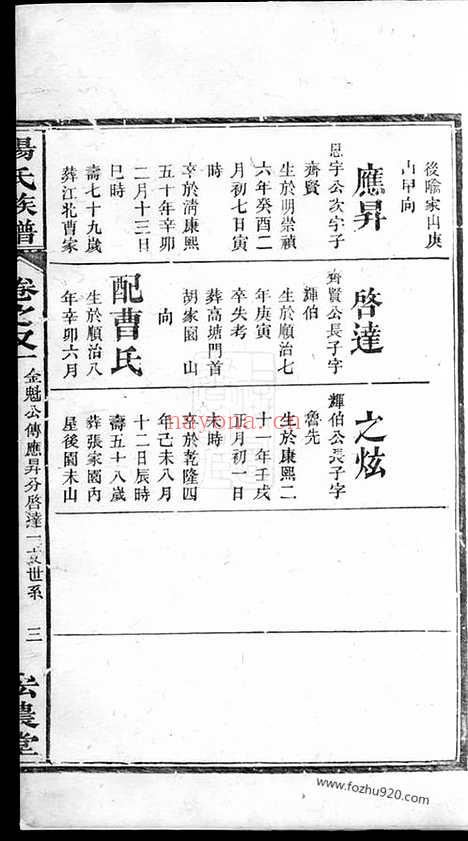 後喻家山庚
山甲向
應昇
思宇公次子字
齊賢
生於明崇禎
六年癸酉二
月初七日寅
時
卒於清康熙
五十年辛卯
二月十三日
巳時
壽七十九歲
葬江北曹家
啓達
齊賢公長子字
輝伯
生於順治七
年庚寅
卒失考
葬高塘門首
胡家園 山
向
配曹氏
生於順治八
年辛卯六月
之炫
輝伯公長子字
魯先
生於康熙二
十一年壬戌
正月初一日
未時
卒於乾隆四
年己未八月
十二日辰時
壽五十八歲
葬張家園內
屋後園未山
楊氏族譜
卷之又一
金魁公傳應昇分啓達一支世系
三
弘農堂
nayona.cn
www.fozhu920.com